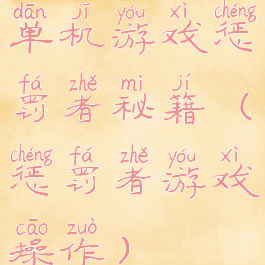 dān jī yóu xì chéng
单机游戏惩
fá zhě mì jí
罚者秘籍（
chéng fá zhě yóu xì
惩罚者游戏
cāo zuò
操作）